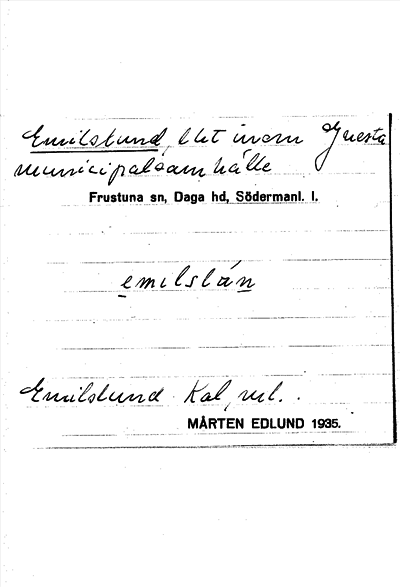 Emilslund, lht inom Gnesta
municipalsamhälle
Frustuna sn, Daga hd, Södermanl. l.
emilslán
Emilslund Kal, ml.
MÅRTEN EDLUND 1935.